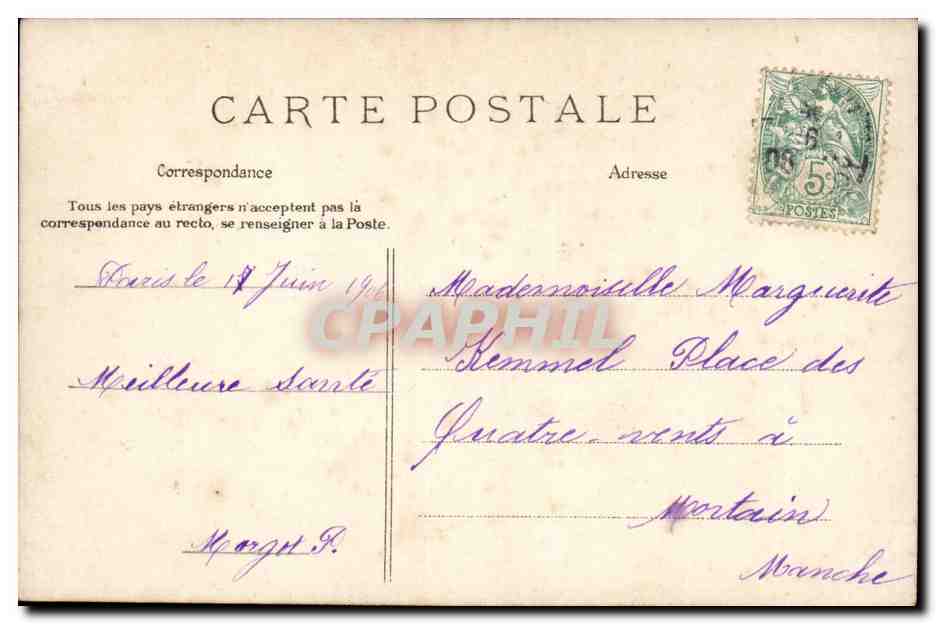 CARTE POSTALE
Correspondance
Tous les pays étrangers n'acceptent pas la
correspondance au recto, se renseigner à la Poste.
Adresse
5c
POSTES
6
06
Paris le 17 Juin 1906
Meilleure Santé
Margot P.
Mademoiselle Marguerite
Kemmel Place des
Quatre-vents à
Mortain
Manche
CPAPHIL